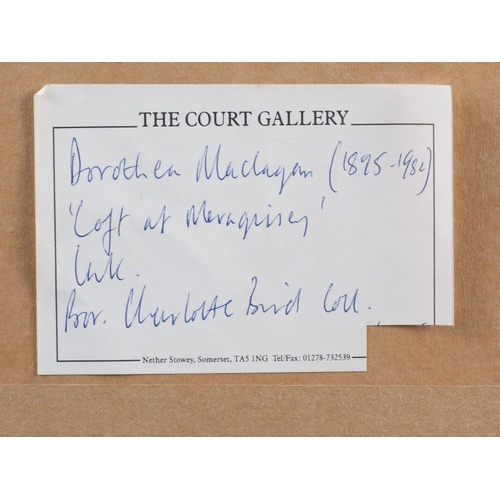 THE COURT GALLERY
Dorothea Maclagan (1895-1982)
'Loft at Mevagissey'
Ink.
Prov. Charlotte Bird Coll.
Nether Stowey, Somerset, TA5 1NG Tel/Fax: 01278-732539